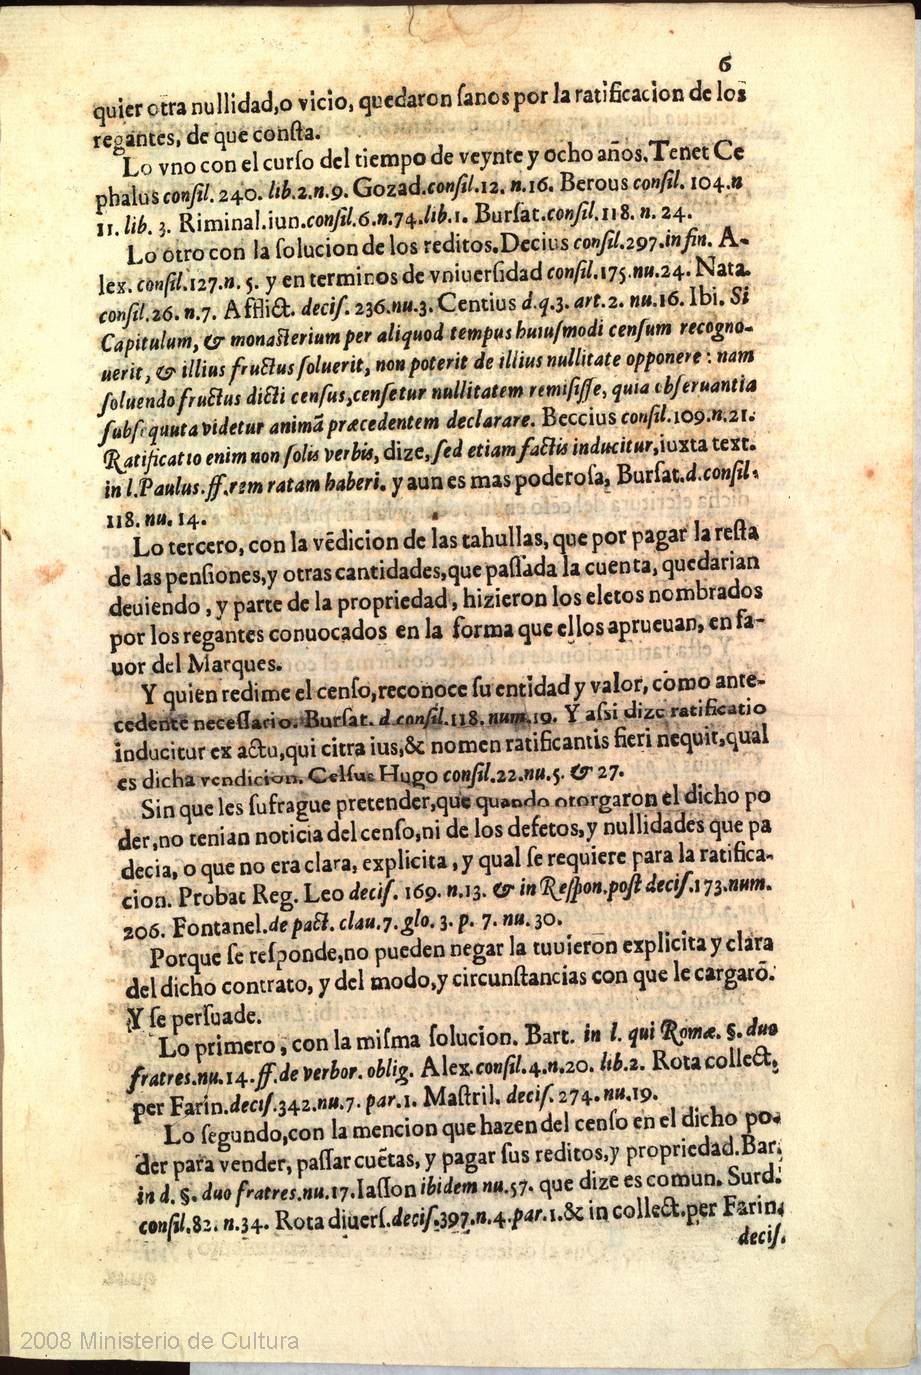 6
quier otra nullidad,o vicio, quedaron ſanos por la ratificacion de los
regantes, de que conſta.
Lo vno con el curſo del tiempo de veynte y ocho años. Tenet Ce
phalus conſil. 240. lib.2.n.9. Gozad.conſil.12. n.16. Berous conſil. 104.n
11. lib. 3. Riminal.iun.conſil.6.n.74.lib.1. Burſat.conſil.118. n. 24.
Lo otro con la ſolucion de los reditos.Decius conſil.297.in fin. A-
lex. conſil.127.n. 5. y en terminos de vniuerſidad conſil.175.nu.24. Nata.
conſil.26. n.7. Afflict. deciſ. 236.nu.3. Centius d.q.3. art.2. nu.16. Ibi. Si
Capitulum, & monaſterium per aliquod tempus huiuſmodi cenſum recogno-
uerit, & illius fructus ſoluerit, non poterit de illius nullitate opponere : nam
ſoluendo fructus dicti cenſus,cenſetur nullitatem remiſiſſe, quia obſeruantia
ſubſequuta videtur animā præcedentem declarare. Beccius conſil.109.n.21.
Ratificatio enim non ſolis verbis, dize, ſed etiam factis inducitur,iuxta text.
in l.Paulus.ff.rem ratam haberi. y aun es mas poderoſa, Burſat.d.conſil.
118. nu. 14.
Lo tercero, con la vēdicion de las tahullas, que por pagar la reſta
de las penſiones,y otras cantidades,que paſſada la cuenta, quedarian
deuiendo , y parte de la propriedad , hizieron los eletos nombrados
por los regantes conuocados en la forma que ellos aprueuan, en fa-
uor del Marques.
Y quien redime el cenſo,reconoce ſu entidad y valor, como ante-
cedente neceſſario. Burſat. d.conſil.118. num.19. Y aſsi dize ratificatio
inducitur ex actu,qui citra ius,& nomen ratificantis fieri nequit,qual
es dicha vendicion. Celſus Hugo conſil.22.nu.5. & 27.
Sin que les ſufrague pretender,que quando otorgaron el dicho po
der,no tenian noticia del cenſo,ni de los defetos,y nullidades que pa
decia, o que no era clara, explicita , y qual ſe requiere para la ratifica-
cion. Probat Reg. Leo deciſ. 169. n.13. & in Reſpon.poſt deciſ.173.num.
206. Fontanel.de pact. clau.7. glo. 3. p. 7. nu. 30.
Porque ſe reſponde,no pueden negar la tuuieron explicita y clara
del dicho contrato, y del modo,y circunſtancias con que le cargarō.
Y ſe perſuade.
Lo primero , con la miſma ſolucion. Bart. in l. qui Romæ. §. duo
fratres.nu.14.ff.de verbor. oblig. Alex.conſil.4.n.20. lib.2. Rota collect.
per Farin.deciſ.342.nu.7. par.1. Maſtril. deciſ. 274. nu.19.
Lo ſegundo,con la mencion que hazen del cenſo en el dicho po-
der para vender, paſſar cuētas, y pagar ſus reditos,y propriedad.Bar.
in d. §. duo fratres.nu.17.Iaſſon ibidem nu.57. que dize es comun. Surd.
conſil.82. n.34. Rota diuerſ.deciſ.397.n.4.par.1.& in collect.per Farin.
deciſ.
2008 Ministerio de Cultura